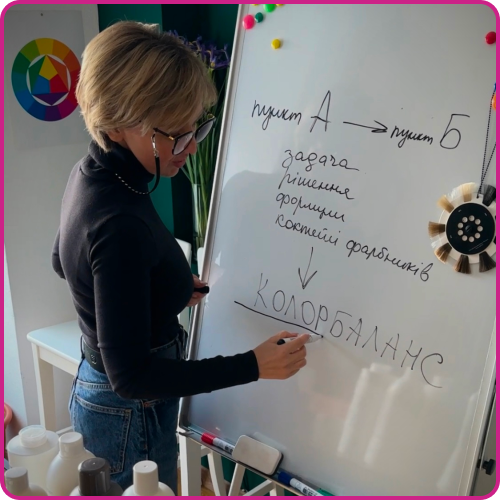 пункт А → пункт Б
задача
рішення
формули
коктейлі фарбників
КОЛОРБАЛАНС